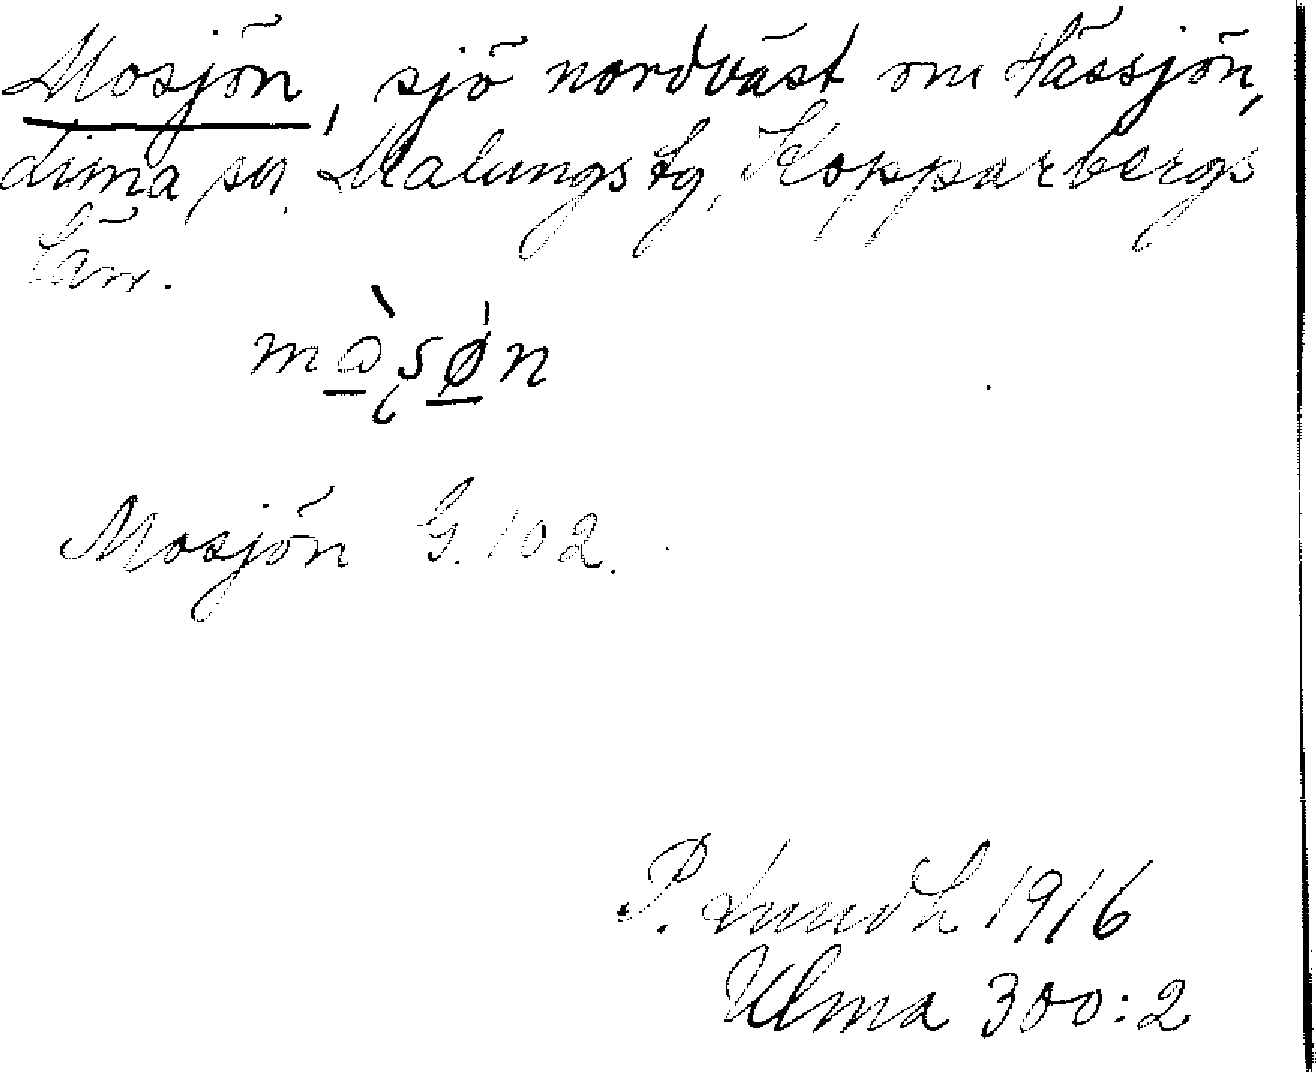 Mosjön, sjö nordväst om Hässjön,
Lima sn. Malungs tg, Kopparbergs
län.
Mosjön G. 102.
P. Lundh 1916
Ulma 300:2